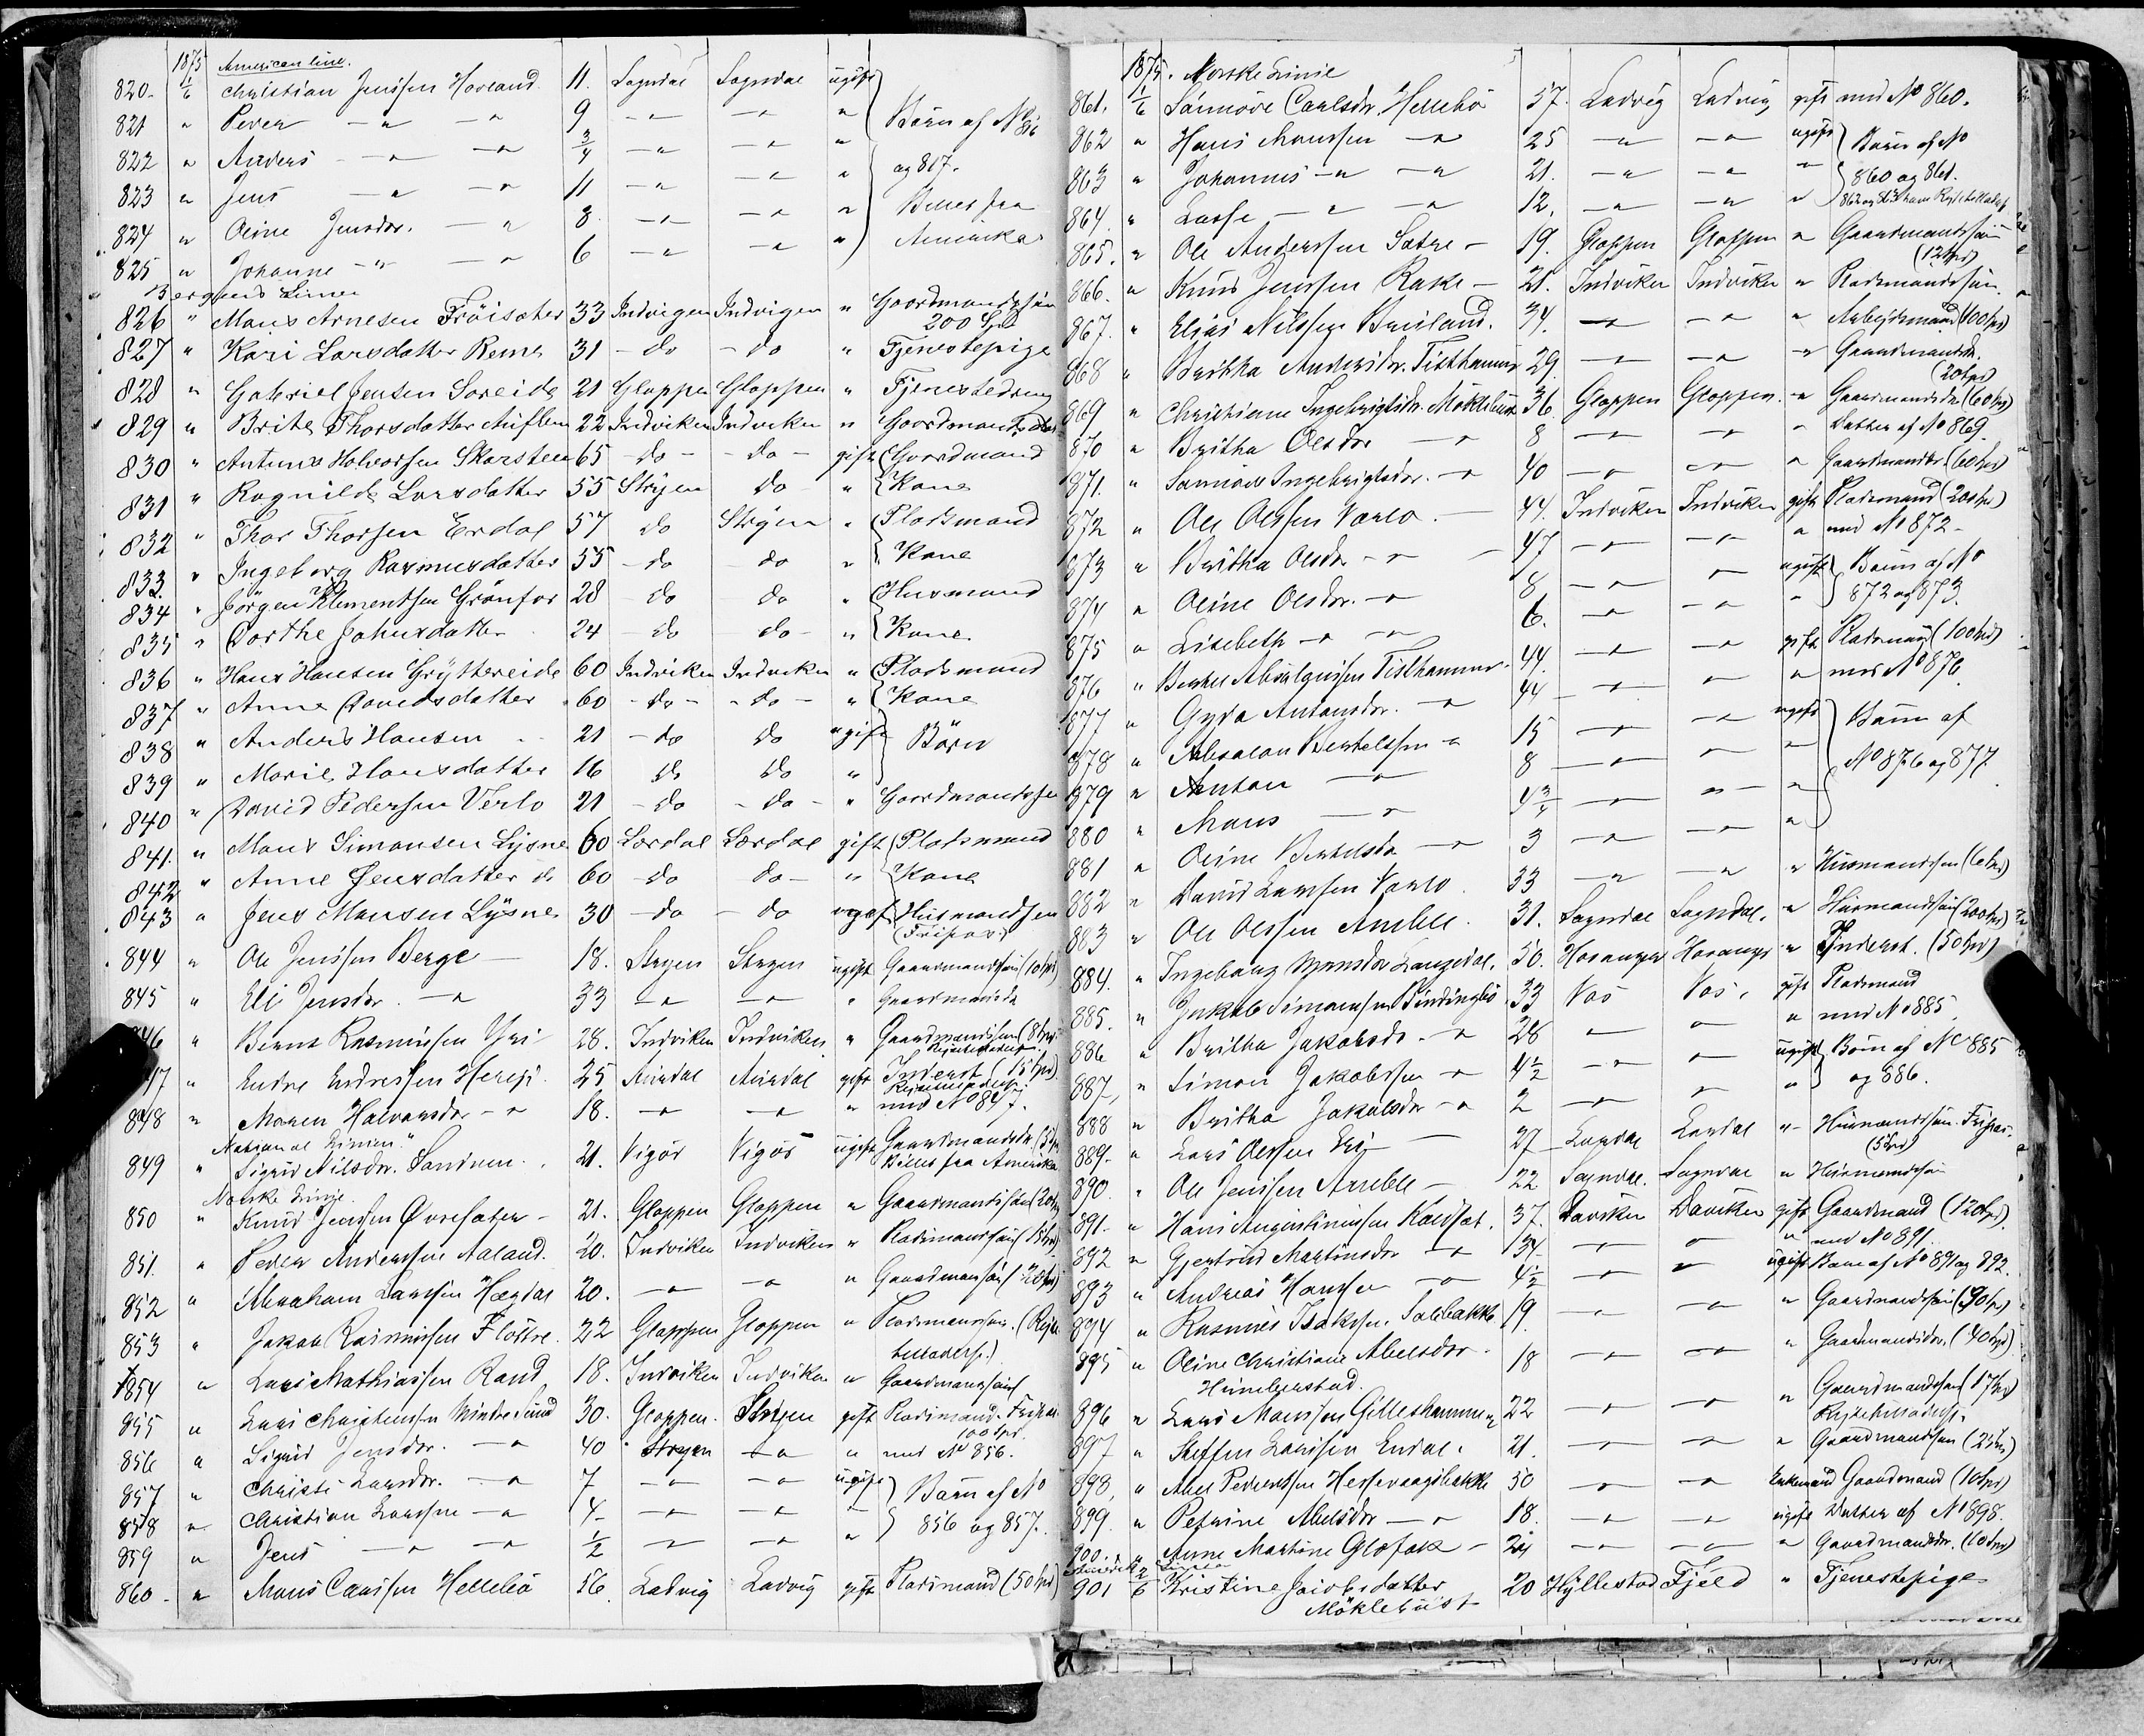 1875 American line.
820. 1/6 Christian Jenssen Hovland 11. Sogndal Sogndal ugift
821 " Peder — " — " 9 — " — " " Børn af No 816
822 " Anders — " — " 3/4 — " — " "
823 " Jens — " — " 11 — " — " " og 817.
824 " Oline Jensdr. — " 8 — " — " " Billet fra
825 " Johanne — " — " 6 — " — " " Amerika
Bergens Linien
826 " Mons Arnesen Fröisæter 33 Indvigen Indvigen " Gaardmandssøn 200 Spd
827 " Kari Larsdatter Reme 31 - do - do " Tjenestepige
828 " Gabriel Jensen Soreide 21 Gloppen Gloppen " Tjenestedreng
829 " Brite Thorsdatter 22 Indviken Indviken " Gaardmands
830 " Antonus Halvorsen Skarsteen 65 - do - - do - gift Gaardmand
831 " Ragnilde Larsdatter 55 Stryen do " Kone
832 " Thor Thorsen Erdal 57 do Stryen " Pladsmand
833. " Ingeborg Rasmusdatter 55 - do do " Kone
834 " Jörgen Klementsen Grönfor 28 - do do " Husmand
835 " Dorthe Johnsdatter 24 - do do - " Kone
836 " Hans Hansen Gryttereide 60 Indviken Indviken " Pladsmand
837 " Anne Davidsdatter 60 - do - - do - " Kone
838 " Anders Hansen 21 - do do ugift Börn
839 " Marie Hansdatter 16 do do "
840 " David Pedersen Verlo 21 - do - do - " Gaardmandssøn
841. " Mons Simonsen Lysne 60 Lærdal Lærdal gift Pladsmand
842 " Anne Jensdatter do 60 - do do - " Kone
843 " Jens Monsen Lysne 30 - do - do ugift Husmandssøn (Fripas)
844 " Ole Jenssen Berge — 18. Stryen Stryen ugift Gaardmandssøn (10 Spd)
845 " Eli Jensdr. — " 33 — " — " " Gaardmandsdr
846 " Bernt Rasmussen Yri 28. Indviken Indviken " Gaardmandssøn (8 Spd)
847 " Endre Endressen Herej. 25 Aurdal Aurdal gift Inderst (15 Spd)
848 " Maren Halvorsdr — " 18. — " — " " med No 847.
National Linien
849 " Sigrid Nilsdr. Sandnen. 21. Vigør Vigør ugift Gaardmandsdr (5 Spd) Billet fra Amerika
Norske Linie.
850 " Knud Jenssen Øvresæter — 21. Gloppen Gloppen " Gaardmandssøn (20 Spd)
851. " Peder Anderssen Aaland. 20. Indviken Indviken " Pladsmandssøn (15 Spd)
852 " Abraham Larssen Hægdal 20. — " — " " Gaardmandssøn (20 Spd)
853 " Jakob Rasmussen Flöttre. 22 Gloppen Gloppen " Pladsmandssøn. (Rejsetilladelse)
854 " Lars Mathiassen Rand 18. Indviken Indviken " Gaardmandssøn
855 " Lars Christensen Mindre Sund 30. Gloppen. Stryen gift Pladsmand. Fripas. 100 Spd.
856 " Sigrid Jensdr. — " 40 Stryen — " " med No 856.
857 " Christi Larsdr. — " 7 — " — " ugift Børn af No
858 " Christian Larssen — " 4 — " — " " 856 og 857.
859 " Jens — " — " 1/2 — " — " "
860. " Mons Carlssen Hellebö 56. Ladvig Ladvig gift Pladsmand (50 Spd)
1875. Norske Linie
861. 1/6 Sannöve Carlsdr. Hellebö 57. Ladvig Ladvig gift med No 860.
862 " Hans Monssen — " 25 — " — " ugift Børn af No
863 " Johannes — " — " 21. — " — " " 860 og 861.
864. " Lasse — " — " 12. — " — " "
865. " Ole Anderssen Sætre — 19. Gloppen Gloppen " Gaardmandssøn (12 Spd)
866. " Knud Jenssen Rake — 21. Indviken Indviken " Pladsmandssøn.
867. " Elias Nilssen Brisland. 34. — " — " " Arbejdsmand (100 Spd)
868 " Britha Andersdr. Tisthammer 29 — " — " " Gaardmandsdr. (20 Spd)
869 " Christiane Ingebrigtsdr. Möklebust 36. Gloppen Gloppen. " Gaardmandsdr. (60 Spd)
870 " Britha Olsdr — " 8 — " — " " Datter af No 869.
871. " Sannöve Ingebrigtsdr. — " 40 — " — " " Gaardmandsdr. (60 Spd)
872 " Ole Olssen Værlo. — 44. Indviken Indviken gift Pladsmand (200 Spd)
873 " Britha Olsdr — " 47 — " — " " med No 872 -
874 " Oline Olsdr. — " 8 — " — " ugift Børn af No
875 " Lisebeth — " — " 6. — " — " " 872 og 873.
876 " Bertel Absalonssen Tisthammer. 44. — " — " gift Pladsmand (100 Spd)
877 " Gyda Antonsdr. — " 44 — " — " " med No 876
878 " Absalon Bertelssen — " 15 — " — " ugift Børn af
879 " Anton — " 8 — " — " " No 876 og 877.
880 " Mons — " 4 3/4 — " — " "
881 " Oline Bertelsdr — " 3 — " — " "
882 " David Larssen Værlo. 33 — " — " " Husmandssøn (6 Spd)
883 " Ole Olssen Amble. 31. Sogndal Sogndal. " Husmandssøn (200 Spd)
884. " Ingeborg Monsdr Langedal. 50. Hosanger Hosanger " Inderst. (50 Spd)
885. " Jakob Simonssen Tindingbö 33 Vos Vos. gift Pladsmand
886 " Britha Jakobsdr. — " 28 — " — " " med No 885.
887, " Simon Jakobssen — " 4 1/2 — " — " ugift Børn af No 885
888 " Britha Jakobsdr — " 2 — " — " " og 886.
889. " Lars Olssen Eri — 27 Lærdal Lærdal " Husmandssøn. Fripas. (5 Spd)
890. " Ole Jenssen Amble — 22 Sogndal. Sogndal " Husmandssøn
891. " Hans Augustinussen Kaldsæt. 37. Daviken Daviken gift Gaardmand (120 Spd).
892 " Gjertrud Martinusdr — " 34 — " — " " med No 891.
893 " Andreas Hanssen — " 4 1/2 — " — " ugift Barn af No 891 og 892.
894 " Rasmus Isakssen Solebakke 19. — " — " " Gaardmandssøn (90 Spd)
895 " Oline Christiane Abelsdr. Hundeerstad. 18 — " — " " Gaardmandsdr. (40 Spd)
896 " Lars Monssen Gilleshammer 22 — " — " " Gaardmandssøn (17 Spd) Rejsetilladelse.
897 " Steffen Larssen Endal. 21. — " — " " Gaardmandssøn (25 Spd)
898, " Abel Pederssen Hessevaagsbakke 50 — " — " Enkemand Gaardmand (10 Spd)
899. " Petrine Abelsdr — " 18. — " — " ugift Datter af No 898.
900. " Anne Martine Glofak — 24 — " — " " Gaardmandsdr. (10 Spd)
901 2/6 Kristine Jacobsdatter Möklebust 20 Hyllestad Fjeld " Tjenestepige